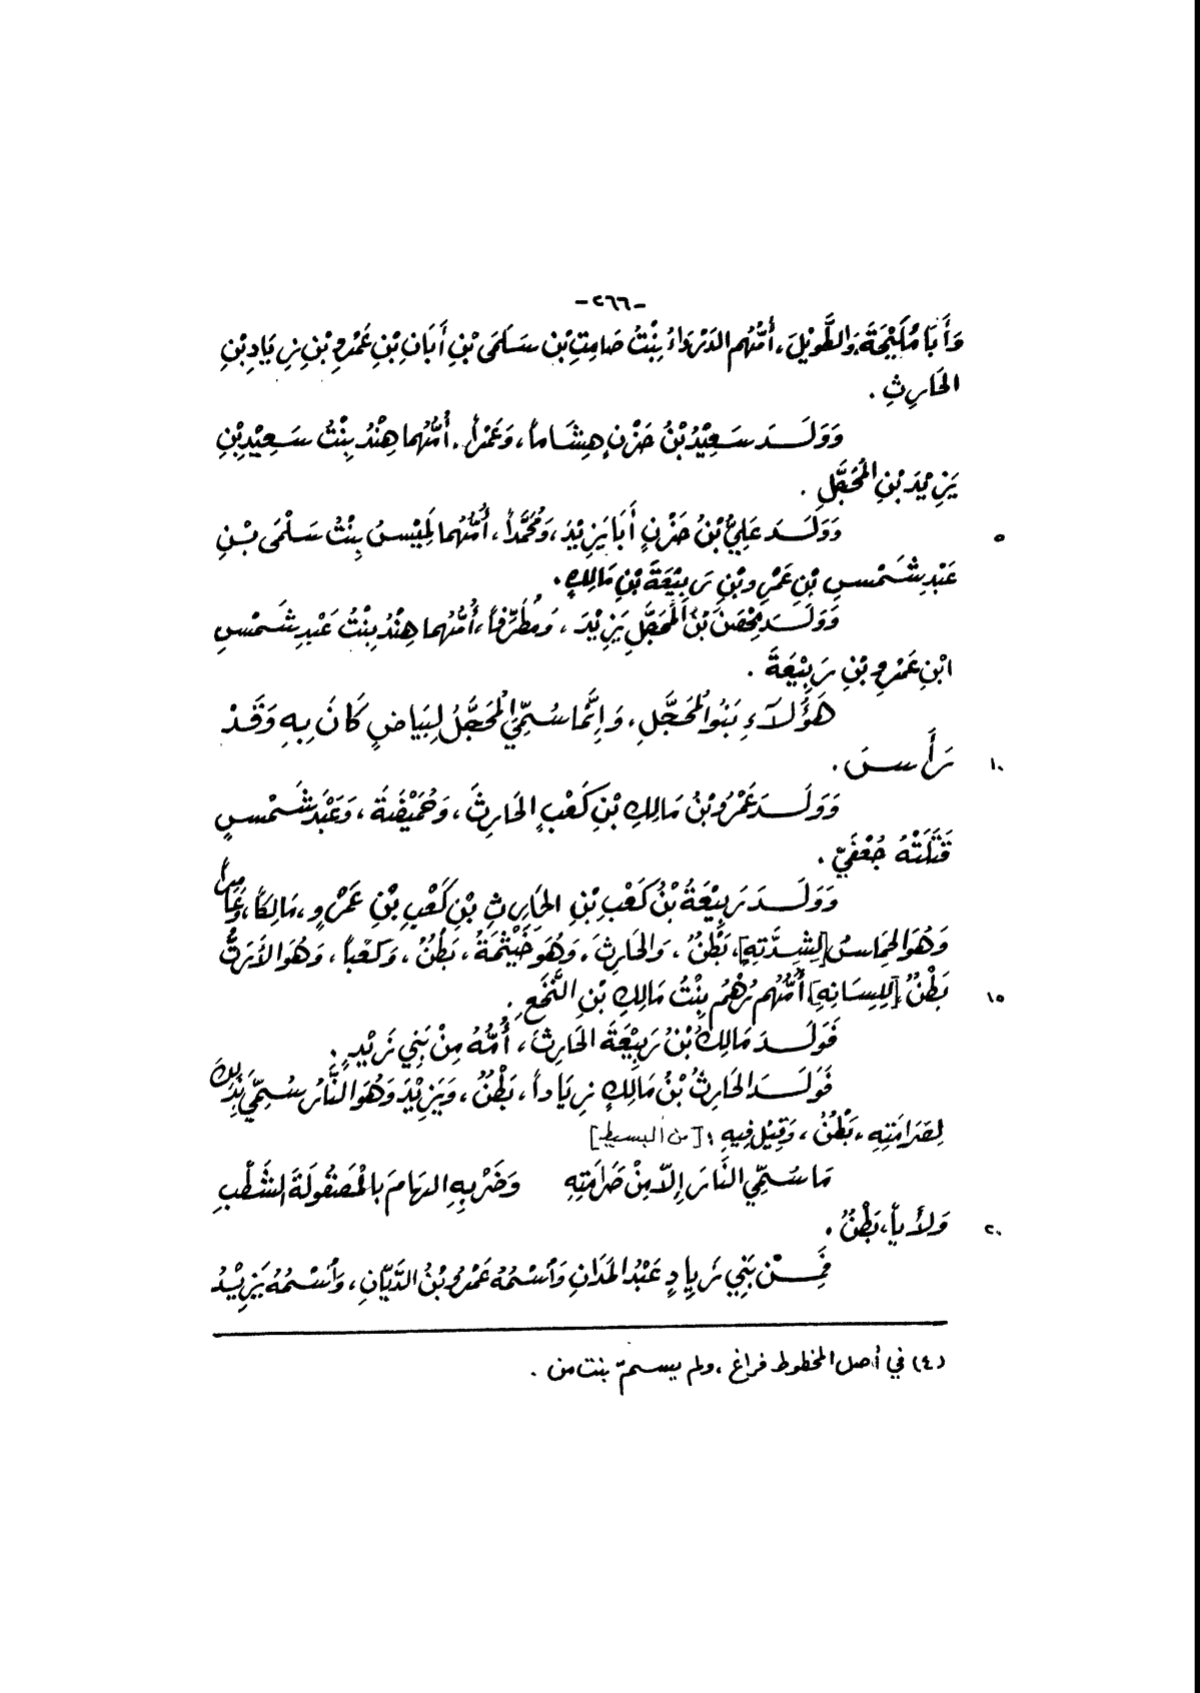 -٢٦٦-
وَأَبَا مُلَيْحَةَ، وَالطَّوِيْلَ، أُمُّهُم الدَّرْدَاءُ بِنْتُ صَامِتِ بْنِ سَلَمَى بْنِ أَبَانِ بْنِ عَمْرِو بْنِ زِيَادِ بْنِ
الحَارِثِ .
وَوَلَدَ سَعِيْدُ بْنُ حَزْنٍ هِشَاماً، وَعَمْراً. أُمُّهُما هِنْدُ بِنْتُ سَعِيْدِ بْنِ
يَزِيْدَ بْنِ المُحَجَّلِ .
٥ وَوَلَدَ عَلِيُّ بْنُ حَزْنٍ أَبَا يَزِيْدَ، وَمُحَمَّداً، أُمُّهُما لَمِيْسُ بِنْتُ سَلْمَى بْنِ
عَبْدِ شَمْسِ بْنِ عَمْرِو بْنِ رَبِيْعَةَ بْنِ مَالِكٍ.
وَوَلَدَ مِحْصَنُ بْنُ المُحَجَّلِ يَزِيْدَ، وَمُطَرِّفاً، أُمُّهُما هِنْدُ بِنْتُ عَبْدِ شَمْسِ
ابْنِ عَمْرِو بْنِ رَبِيْعَةَ .
هَؤُلَاءِ بَنُو المُحَجَّلِ، وَإِنَّمَا سُمِّيَ المُحَجَّلُ لِبَيَاضٍ كَانَ بِهِ وَقَدْ
١٠ رَأَسَ .
وَوَلَدَ عَمْرُو بْنُ مَالِكِ بْنِ كَعْبٍ الحَارِثَ، وَحُمَيْضَةَ، وَعَبْدَ شَمْسٍ
قَتَلَتْهُ جُعْفِيّ .
وَوَلَدَ رَبِيْعَةُ بْنُ كَعْبِ بْنِ الحَارِثِ بْنِ كَعْبِ بْنِ عَمْرٍو، مَالِكاً، وَعَامِراً
وَهُوَ الحِمَاسُ [لِشِدَّتِهِ]، بَطْنٌ، وَالحَارِثَ، وَهُوَ خَيْثَمَةُ، بَطْنٌ، وَكَعْباً، وَهُوَ الأَرَقُّ
١٥ بَطْنٌ [لِلِسَانِهِ] أُمُّهُم رُهْمُ بِنْتُ مَالِكِ بْنِ النَّخَعِ .
فَوَلَدَ مَالِكُ بْنُ رَبِيْعَةَ الحَارِثَ، أُمُّهُ مِنْ بَنِي زَيْدٍ .
فَوَلَدَ الحَارِثُ بْنُ مَالِكٍ زِيَاداً، بَطْنٌ، وَيَزِيْدَ وَهُوَ النَّارُ سُمِّيَ بِذَلِكَ
لِصَرَامَتِهِ، بَطْنٌ، وَقِيْلَ فِيهِ : [من البسيط]
مَا سُمِّيَ النَّارَ إِلّا مِنْ صَرَامَتِهِ وَضَرْبِهِ الهَامَ بِالمَصْقُولَةِ الشَّطْبِ
٢٠ وَلأْياً، بَطْنٌ .
فَمِنْ بَنِي زِيَادٍ عَبْدُ المَدَانِ وَاسْمُهُ عَمْرُو بْنُ الدَّيَّانِ، وَاسْمُهُ يَزِيْدُ
(٤) في أصل المخطوط فراغ، ولم يسمّ بنت من .